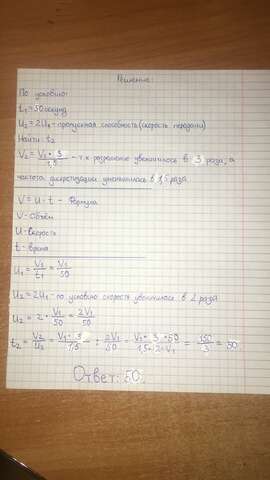 Решение:
По условию:
t₁=50 секунд
U₂=2U₁ - пропускная способность (скорость передачи)
Найти: t₂
V₂ = V₁ · 3 / 1,5 - т.к разрешение увеличилось в 3 раза, а
частота дискретизации уменьшилась в 1,5 раза
V=U·t - Формула
V-Объём
U-Скорость
t-время
U₁ = V₁/t₁ = V₁/50
U₂=2U₁ - по условию скорость увеличилась в 2 раза
U₂ = 2 · V₁/50 = 2V₁/50
t₂ = V₂/U₂ = V₁ · 3 / 1,5 : 2V₁/50 = V₁ · 3 · 50 / 1,5 · 2 · V₁ = 150/3 = 50
Ответ: 50.